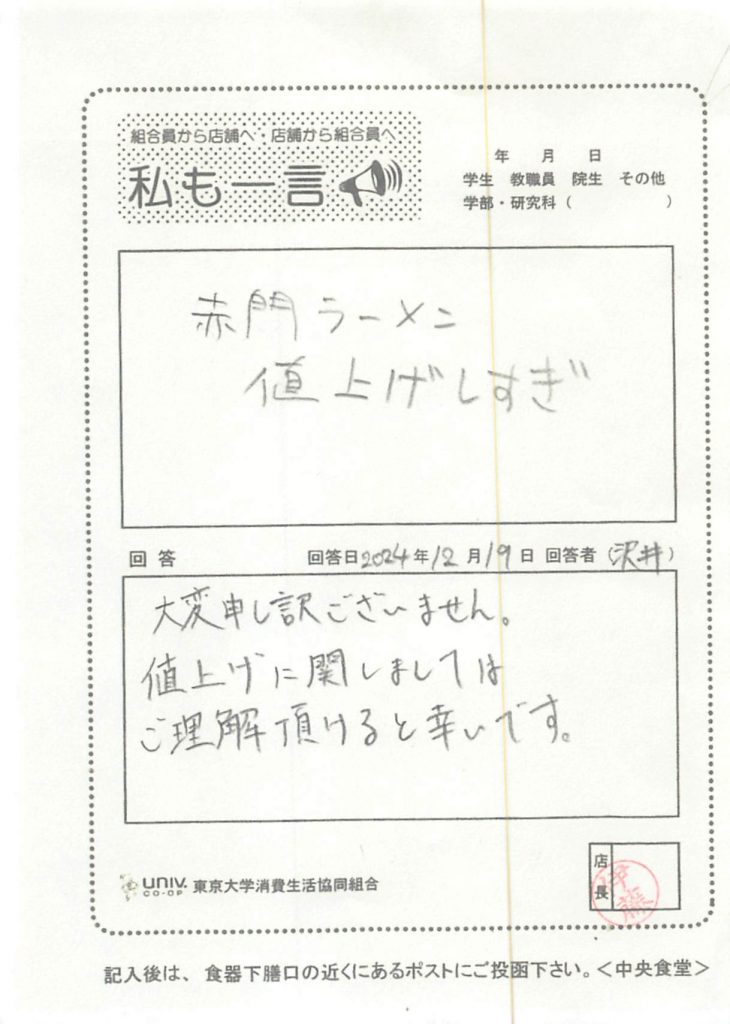 組合員から店舗へ・店舗から組合員へ
私も一言
年 月 日
学生 教職員 院生 その他
学部・研究科（ ）
赤門ラーメン
値上げしすぎ
回答 回答日2024年12月19日 回答者（沢井）
大変申し訳ございません。
値上げに関しましては
ご理解頂けると幸いです。
UNIV. CO-OP 東京大学消費生活協同組合
店長
伊藤
記入後は、食器下膳口の近くにあるポストにご投函下さい。＜中央食堂＞